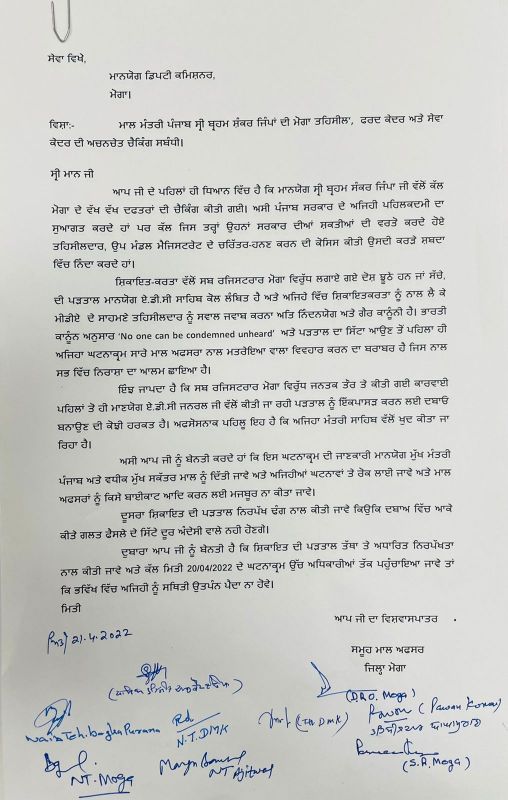 ਸੇਵਾ ਵਿਖੇ,
ਮਾਨਯੋਗ ਡਿਪਟੀ ਕਮਿਸ਼ਨਰ,
ਮੋਗਾ।
ਵਿਸ਼ਾ:- ਮਾਲ ਮੰਤਰੀ ਪੰਜਾਬ ਸ੍ਰੀ ਬ੍ਰਹਮ ਸ਼ੰਕਰ ਜਿੰਪਾਂ ਦੀ ਮੋਗਾ ਤਹਿਸੀਲ', ਫਰਦ ਕੇਦਰ ਅਤੇ ਸੇਵਾ
ਕੇਦਰ ਦੀ ਅਚਨਚੇਤ ਚੈਕਿੰਗ ਸਬੰਧੀ।
ਸ੍ਰੀ ਮਾਨ ਜੀ
ਆਪ ਜੀ ਦੇ ਪਹਿਲਾਂ ਹੀ ਧਿਆਨ ਵਿੱਚ ਹੈ ਕਿ ਮਾਨਯੋਗ ਸ੍ਰੀ ਬ੍ਰਹਮ ਸੰਕਰ ਜਿੰਪਾ ਜੀ ਵੱਲੋਂ ਕੱਲ
ਮੋਗਾ ਦੇ ਵੱਖ ਵੱਖ ਦਫਤਰਾਂ ਦੀ ਚੈਕਿੰਗ ਕੀਤੀ ਗਈ। ਅਸੀ ਪੰਜਾਬ ਸਰਕਾਰ ਦੇ ਅਜਿਹੀ ਪਹਿਲਕਦਮੀ ਦਾ
ਸੁਆਗਤ ਕਰਦੇ ਹਾਂ ਪਰ ਕੱਲ ਜਿਸ ਤਰ੍ਹਾਂ ਉਹਨਾਂ ਸਰਕਾਰ ਦੀਆਂ ਸ਼ਕਤੀਆਂ ਦੀ ਵਰਤੋ ਕਰਦੇ ਹੋਏ
ਤਹਿਸੀਲਦਾਰ, ਉਪ ਮੰਡਲ ਮੈਜਿਸਟਰੇਟ ਦੇ ਚਰਿੱਤਰ-ਹਨਣ ਕਰਨ ਦੀ ਕੋਸਿਸ ਕੀਤੀ ਉਸਦੀ ਕਰੜੇ ਸ਼ਬਦਾ
ਵਿੱਚ ਨਿੰਦਾ ਕਰਦੇ ਹਾਂ।
ਸ਼ਿਕਾਇਤ-ਕਰਤਾ ਵੱਲੋਂ ਸਬ ਰਜਿਸਟਰਾਰ ਮੋਗਾ ਵਿਰੁੱਧ ਲਗਾਏ ਗਏ ਦੋਸ਼ ਝੂਠੇ ਹਨ ਜਾਂ ਸੱਚੇ,
ਦੀ ਪੜਤਾਲ ਮਾਨਯੋਗ ਏ.ਡੀ.ਸੀ ਸਾਹਿਬ ਕੋਲ ਲੰਬਿਤ ਹੈ ਅਤੇ ਅਜਿਹੇ ਵਿੱਚ ਸ਼ਿਕਾਇਤਕਰਤਾ ਨੂੰ ਨਾਲ ਲੈ ਕੇ
ਮੀਡੀਏ ਦੇ ਸਾਹਮਣੇ ਤਹਿਸੀਲਦਾਰ ਨੂੰ ਸਵਾਲ ਜਵਾਬ ਕਰਨਾ ਅਤਿ ਨਿੰਦਨਯੋਗ ਅਤੇ ਗੈਰ ਕਾਨੂੰਨੀ ਹੈ। ਭਾਰਤੀ
ਕਾਨੂੰਨ ਅਨੁਸਾਰ 'No one can be condemned unheard' ਅਤੇ ਪੜਤਾਲ ਦਾ ਸਿੱਟਾ ਆਉਣ ਤੋਂ ਪਹਿਲਾ ਹੀ
ਅਜਿਹਾ ਘਟਨਾਕ੍ਰਮ ਸਾਰੇ ਮਾਲ ਅਫਸਰਾ ਨਾਲ ਮਤਰੇਇਆ ਵਾਲਾ ਵਿਵਹਾਰ ਕਰਨ ਦਾ ਬਰਾਬਰ ਹੈ ਜਿਸ ਨਾਲ
ਸਭ ਵਿੱਚ ਨਿਰਾਸ਼ਾ ਦਾ ਆਲਮ ਛਾਇਆ ਹੈ।
ਇੰਝ ਜਾਪਦਾ ਹੈ ਕਿ ਸਬ ਰਜਿਸਟਰਾਰ ਮੋਗਾ ਵਿਰੁੱਧ ਜਨਤਕ ਤੌਰ ਤੇ ਕੀਤੀ ਗਈ ਕਾਰਵਾਈ
ਪਹਿਲਾਂ ਤੋ ਹੀ ਮਾਣਯੋਗ ਏ.ਡੀ.ਸੀ ਜਨਰਲ ਜੀ ਵੱਲੋਂ ਕੀਤੀ ਜਾ ਰਹੀ ਪੜਤਾਲ ਨੂੰ ਇੱਕਪਾਸੜ ਕਰਨ ਲਈ ਦਬਾਓ
ਬਨਾਉਣ ਦੀ ਕੋਝੀ ਹਰਕਤ ਹੈ। ਅਫਸੋਸਨਾਕ ਪਹਿਲੂ ਇਹ ਹੈ ਕਿ ਅਜਿਹਾ ਮੰਤਰੀ ਸਾਹਿਬ ਵੱਲੋਂ ਖੁਦ ਕੀਤਾ ਜਾ
ਰਿਹਾ ਹੈ।
ਅਸੀ ਆਪ ਜੀ ਨੂੰ ਬੇਨਤੀ ਕਰਦੇ ਹਾਂ ਕਿ ਇਸ ਘਟਨਾਕ੍ਰਮ ਦੀ ਜਾਣਕਾਰੀ ਮਾਨਯੋਗ ਮੁੱਖ ਮੰਤਰੀ
ਪੰਜਾਬ ਅਤੇ ਵਧੀਕ ਮੁੱਖ ਸਕੱਤਰ ਮਾਲ ਨੂੰ ਦਿੱਤੀ ਜਾਵੇ ਅਤੇ ਅਜਿਹੀਆਂ ਘਟਨਾਵਾਂ ਤੇ ਰੋਕ ਲਾਈ ਜਾਵੇ ਅਤੇ ਮਾਲ
ਅਫਸਰਾਂ ਨੂੰ ਕਿਸੇ ਬਾਈਕਾਟ ਆਦਿ ਕਰਨ ਲਈ ਮਜਬੂਰ ਨਾ ਕੀਤਾ ਜਾਵੇ।
ਦੂਸਰਾ ਸ਼ਿਕਾਇਤ ਦੀ ਪੜਤਾਲ ਨਿਰਪੱਖ ਢੰਗ ਨਾਲ ਕੀਤੀ ਜਾਵੇ ਕਿਉਕਿ ਦਬਾਅ ਵਿੱਚ ਆਕੇ
ਕੀਤੇ ਗਲਤ ਫੈਸਲੇ ਦੇ ਸਿੱਟੇ ਦੂਰ ਅੰਦੇਸੀ ਵਾਲੇ ਨਹੀ ਹੋਣਗੇ।
ਦੁਬਾਰਾ ਆਪ ਜੀ ਨੂੰ ਬੇਨਤੀ ਹੈ ਕਿ ਸ਼ਿਕਾਇਤ ਦੀ ਪੜਤਾਲ ਤੱਥਾ ਤੇ ਅਧਾਰਿਤ ਨਿਰਪੱਖਤਾ
ਨਾਲ ਕੀਤੀ ਜਾਵੇ ਅਤੇ ਕੱਲ ਮਿਤੀ 20/04/2022 ਦੇ ਘਟਨਾਕ੍ਰਮ ਉੱਚ ਅਧਿਕਾਰੀਆਂ ਤੱਕ ਪਹੁੰਚਾਇਆ ਜਾਵੇ ਤਾਂ
ਕਿ ਭਵਿੱਖ ਵਿੱਚ ਅਜਿਹੀ ਨੂੰ ਸਥਿਤੀ ਉਤਪੰਨ ਪੈਦਾ ਨਾ ਹੋਵੇ।
ਮਿਤੀ
ਆਪ ਜੀ ਦਾ ਵਿਸ਼ਵਾਸਪਾਤਰ
ਮਿਤੀ 21.4.2022
ਸਮੂਹ ਮਾਲ ਅਫਸਰ
ਜਿਲ੍ਹਾ ਮੋਗਾ
(D.R.O. Moga)
(Pawan Kumar)
N.T. DMK
(S.R. Moga)
NT. Moga
NT Ajitwal